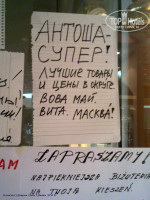 АНТОША-
СУПЕР!
ЛУЧШИЕ ТОВАРЫ
И ЦЕНЫ В ОКРУГЕ
ВОВА МАЙ.
ВИТА. МАСКВА!
ZAPRASZAMY!
NAJPIĘKNIEJSZA BIŻUTERIA
NA TWOJĄ KIESZEŃ.